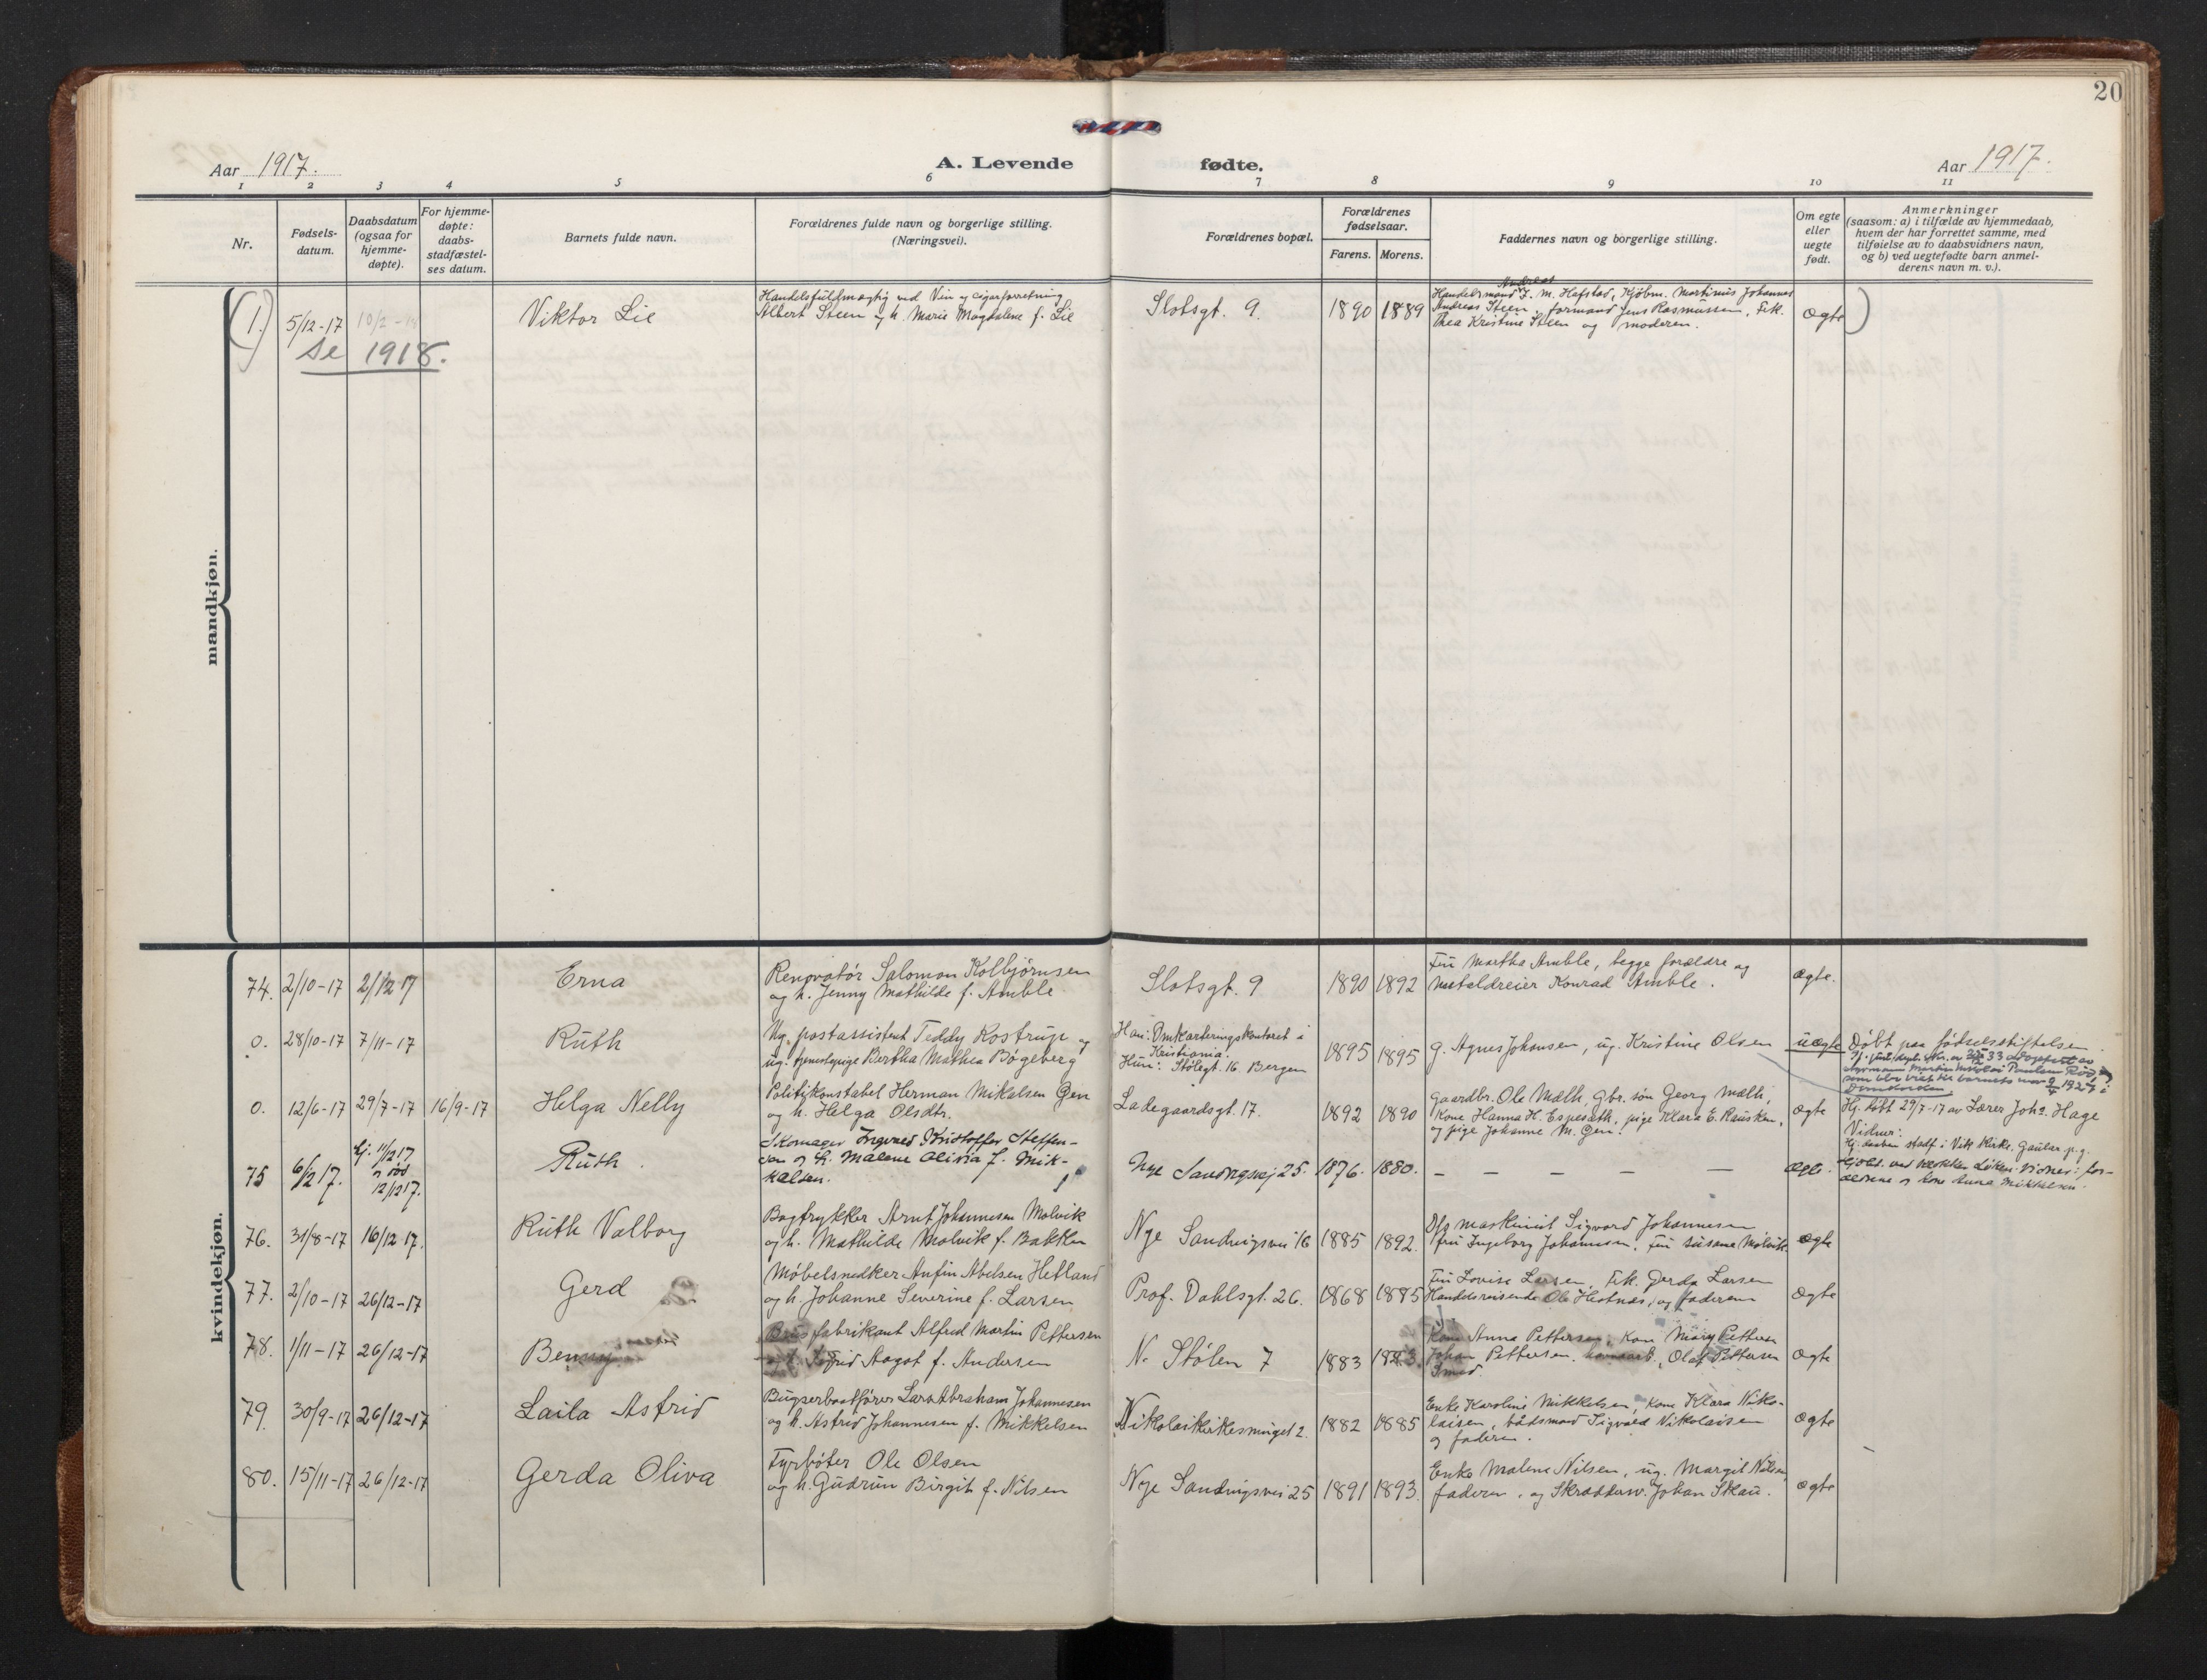 20
Aar 1917.
A. Levende fødte.
Aar 1917.
1 2 3 4 5 6 7 8 9 10 11
Nr.
Fødsels-
datum.
Daabsdatum
(ogsaa for
hjemme-
døpte).
For hjemme-
døpte:
daabs-
stadfæstel-
ses datum.
Barnets fulde navn.
Forældrenes fulde navn og borgerlige stilling.
(Næringsvei).
Forældrenes bopæl.
Forældrenes
fødselsaar.
Farens. Morens.
Faddernes navn og borgerlige stilling.
Om egte
eller
uegte
født.
Anmerkninger
(saasom: a) i tilfælde av hjemmedaab,
hvem der har forrettet samme, med
tilføielse av to daabsvidners navn,
og b) ved uegtefødte barn anmel-
derens navn m. v.).
mandkjøn.
(1.) 5/12-17 10/2-18
se 1918.
Viktor Lie
Handelsfuldmægtig ved Vin og cigarforretning
Albert Steen og h. Marie Magdalene f. Lie
Slotsgt. 9.
1890 1889
Andreas
Handelsmand J. M. Hafstad, Kjøbm. Martinus Johannes
Andreas Steen, formand Jens Rasmussen, Frk.
Thea Kristine Steen og moderen.
ægte)
kvindekjøn.
74. 2/10-17 2/12 17
Erna
Renovatør Salomon Kolbjørnsen
og h. Jenny Mathilde f. Amble
Slotsgt. 9
1890 1892
Fru Martha Amble, begge forældre og
metaldreier Konrad Amble.
ægte.
0. 28/10-17 7/11-17
Ruth
Ug. postassistent Teddy Rostrup og
ug. tjenestepige Bertha Mathea Bøgeberg
Han: Omkarteringskontoret i
Kristiania.
Hun: Stølegt. 16. Bergen
1895 1895
g. Agnes Johansen, ug. Kristine Olsen
uægte
Døbt paa fødselsstiftelsen.
barnets mor 9/4 1927 i
Domkirken
0. 12/6-17 29/7-17 16/9-17
Helga Nelly
Politikonstabel Herman Mikalsen Gen
og h. Helga Olsdtr.
Ladegaardsgt. 17.
1892 1890
Gaardbr. Ole Mælh, Gbr. søn Georg Mælh,
Kone Hanna H. Espeseth, pige Klara E. Rausken,
og pige Johanne M. Gen.
ægte
Hj. døbt 29/7-17 av Lærer Johs. Hage
Vidner:
Hj. daaben stadf. i Vik kirke, Gaular p.g.
75 6/12 17. hj. 11/12 17
12/12 17.
Ruth.
Skomager Ingvald Kristoffer Steffen-
sen og h. Malene Olivia f. Mik-
kalsen.
Nye Sandvigsvej 25.
1876. 1880.
– – – – –
ægte.
Vidner: for-
ældrene og kone Anna Mikkelsen.
76. 31/8-17 16/12 17.
Ruth Valborg
Bogtrykker Arnt Johannesen Molvik
og h. Mathilde Molvik f. Bakken
Nye Sandvigsvei 16
1885 1892.
D/s maskinist Sigvard Johannesen
fru Ingeborg Johannesen. Fru Susanne Molvik.
ægte
77. 2/10-17 26/12-17
Gerd
Møbelsnedker Anfin Abelsen Hetland
og h. Johanne Severine f. Larsen
Prof. Dahlsgt. 26.
1868 1885
Fru Lovise Larsen, Frk. Gerda Larsen
Handelsreisende Ole Hestnes, og faderen
ægte
78. 1/11-17 26/12-17
Benny
fabrikant Alfred Martin Pettersen
Aagot f. Andersen
N. Stølen 7
1883 1883.
Kone Anna Pettersen, Kone Mary Pettersen
Johan Pettersen, havnearb., Olaf Pettersen
Smed.
ægte
79. 30/9-17 26/12-17
Laila Astrid
Bugserbaatfører Lars Abraham Johannesen
og h. Astrid Johannesen f. Mikkelsen
Nikolaikirkesmuget 2.
1882 1885
Enke Karoline Mikkelsen, Kone Klara Niko-
laisen, bådsmand Sigvald Nikolaisen
og faderen.
ægte
80. 15/11-17 26/12-17
Gerda Oliva
Fyrbøter Ole Olsen
og h. Gudrun Birgit f. Nilsen
Nye Sandvigsvei 25
1891 1893.
Enke Malene Nilsen, ug. Margit Nilsen,
faderen, og Skræddersv. Johan Skau.
ægte